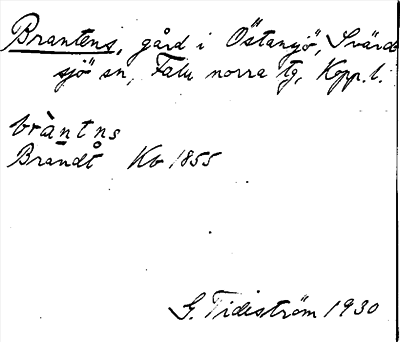 Brantens, gård i Östansjö, Svärd-
sjö sn, Falu norra tg, Kopp. l.
bràn̠tn̥s
Brandt Kb 1855
G. Tidiström 1930